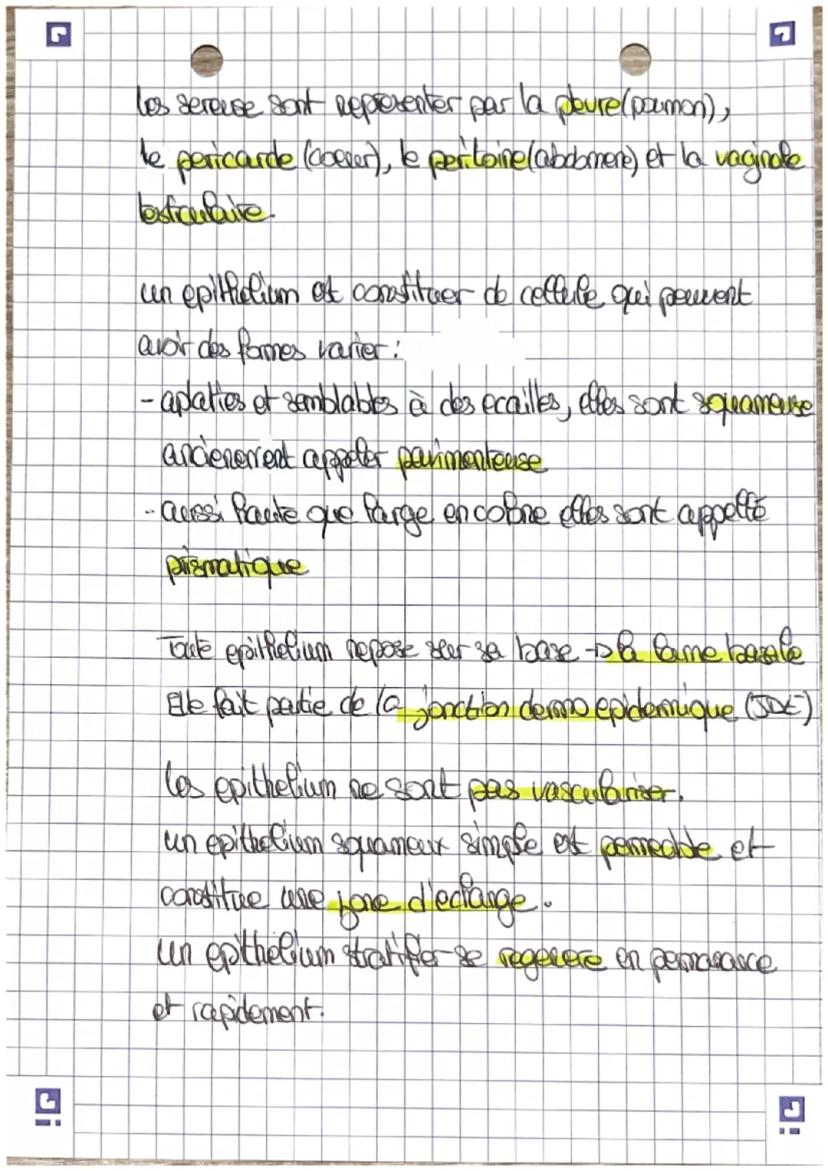 les sereuse sont representer par la plevre (poumon),
le pericarde (coeur), le peritoine (abdomene) et la vaginale
testiculaire.
un epithelium est constituer de cellule qui peuvent
avoir des formes varier :
- aplaties et semblables à des ecailles, elles sont squameuse
anciennement appeler pavimenteuse
- aussi haute que large en colone elles sont appellé
prismatique
Toute epithelium repose sur sa base -> la lame basale
Elle fait partie de la jonction dermo epidermique (JDE)
les epithelium ne sont pas vasculariser.
un epithelium squameux simple est permeable et
constitue une zone d'echange.
un epithelium stratifier se regenere en permanance
et rapidement.